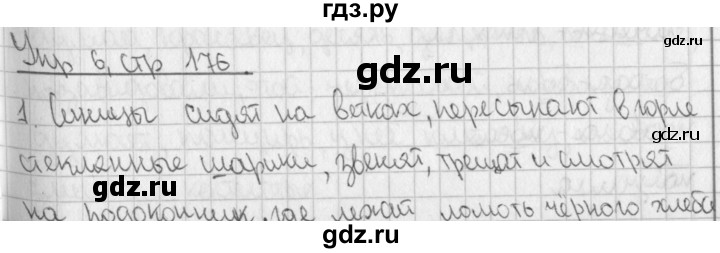 гдз.ру
Упр 6, стр 176
gdz.ru
gdz.ru
1. Синицы сидят на ветках, пересыпают в горле
стеклянные шарики, звенят, трещат и смотрят
gdz.ru
gdz.ru
на подоконник, где лежал ломоть чёрного хлеба
gdz.ru